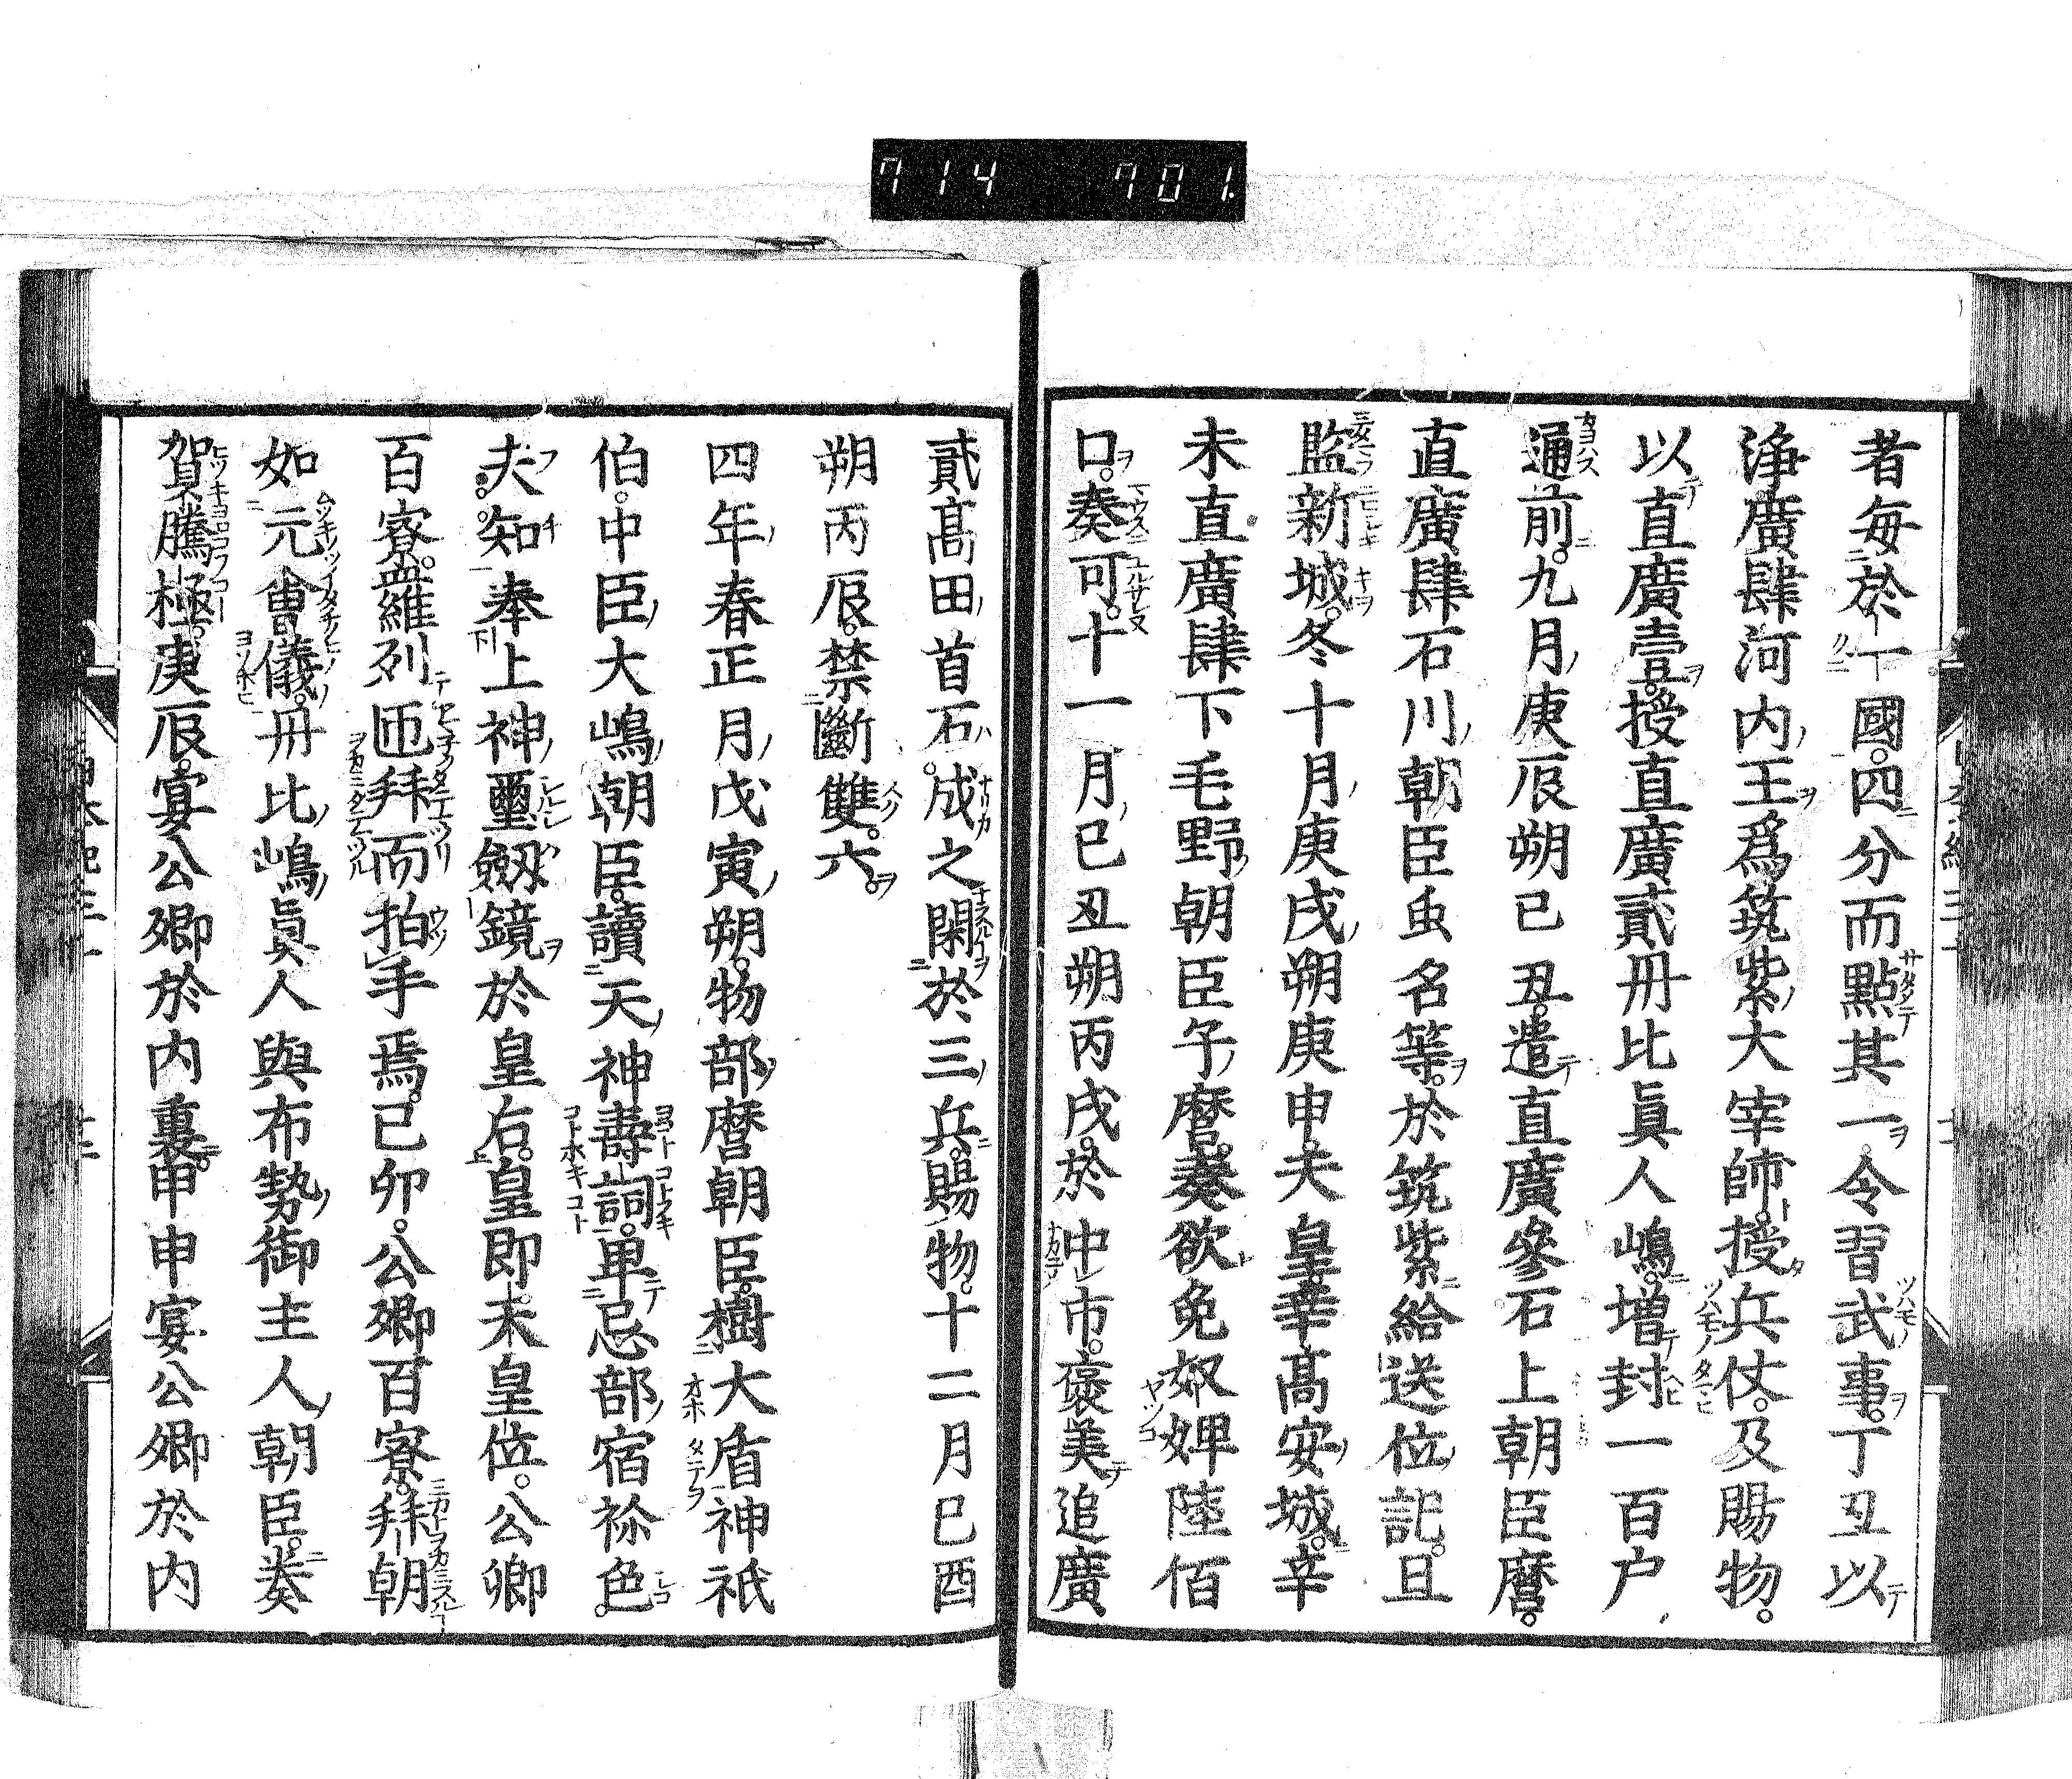 714 701.
者毎於一國四分而點其一令習武事丁丑以
浄廣肆河内王爲筑紫大宰師授兵仗及賜物
以直廣壹授直廣貳丹比眞人嶋増封一百户
通前九月庚辰朔己丑遣直廣參石上朝臣麿
直廣肆石川朝臣虫名等於筑紫給送位記且
監新城冬十月庚戌朔庚申天皇幸髙安城辛
未直廣肆下毛野朝臣子麿奏欲免奴婢陸佰
口奏可十一月己丑朔丙戌於中市襃美追廣
貳髙田首石成之閑於三兵賜物十二月己酉
朔丙辰禁斷雙六
四年春正月戊寅朔物部麿朝臣樹大盾神祇
伯中臣大嶋朝臣讀天神壽詞畢忌部宿祢色
夫知奉上神璽劔鏡於皇后皇即天皇位公卿
百寮羅列匝拜而拍手焉己卯公卿百寮拜朝
如元會儀丹比嶋眞人與布勢御主人朝臣奏
賀騰極庚辰宴公卿於内裏甲申宴公卿於内